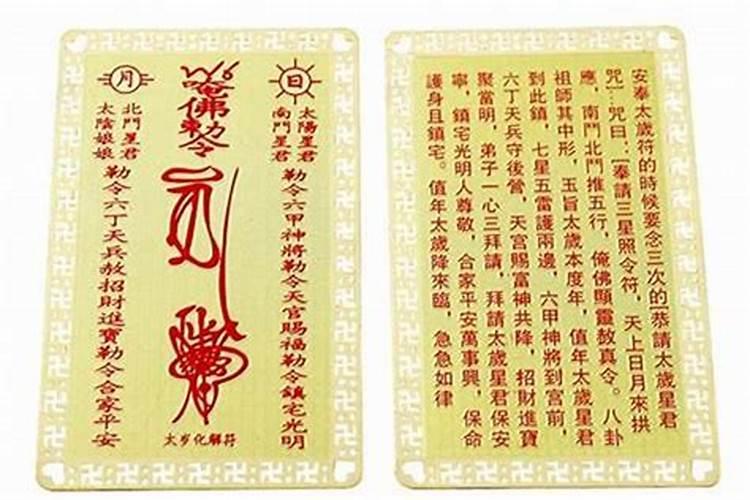 日
太陽星君
南鬥星君
勒令六甲神將勒令天官賜福勒令鎮宅光明
唵佛勅令
太岁化解符
月
北鬥星君
太陰娘娘
勒令六丁天兵赦招財進寶勒令合家平安
安奉太歲符的時候要念三次的[恭請太歲星君
咒]…咒曰:[奉請三星照令符，天上日月來拱
應，南鬥北鬥推五行，俺佛顯靈敖真令。八卦
祖師其中形，玉旨太歲本度年，值年太歲星君
到此鎮，七星五雷護兩邊，六甲神將到宫前，
六丁天兵守後營，天宫賜富神共降，招財進寶
聚當明，弟子一心三拜請，拜請太歲星君保安
寧，鎮宅光明人尊敬，合家平安萬事興，保命
護身且鎮宅。值年太歲降來臨，急急如律